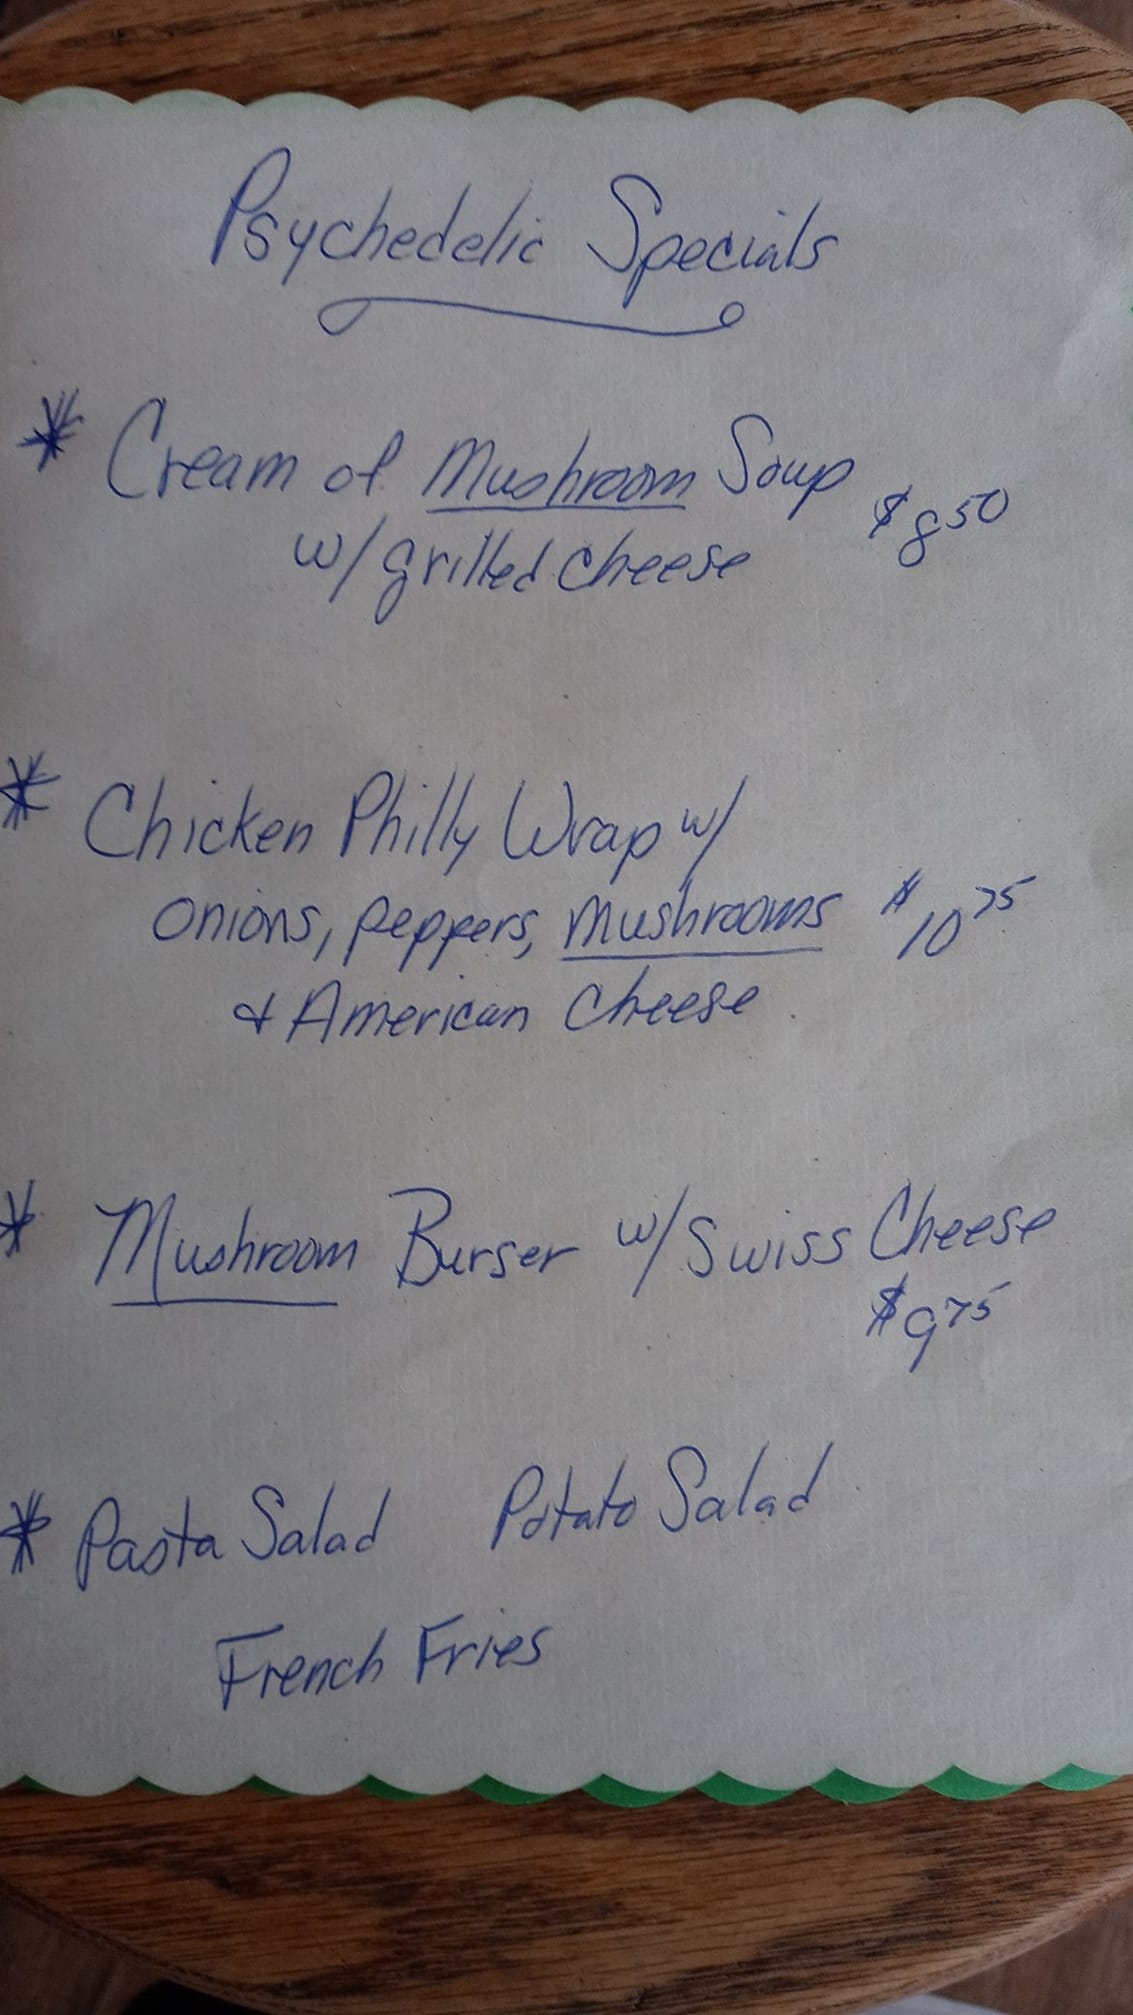 Psychedelic Specials
* Cream of Mushroom Soup $8 50
w/ grilled cheese
* Chicken Philly Wrap w/
onions, peppers, mushrooms $10 75
& American Cheese
* Mushroom Burger w/ Swiss Cheese
$9 75
* Pasta Salad Potato Salad
French Fries